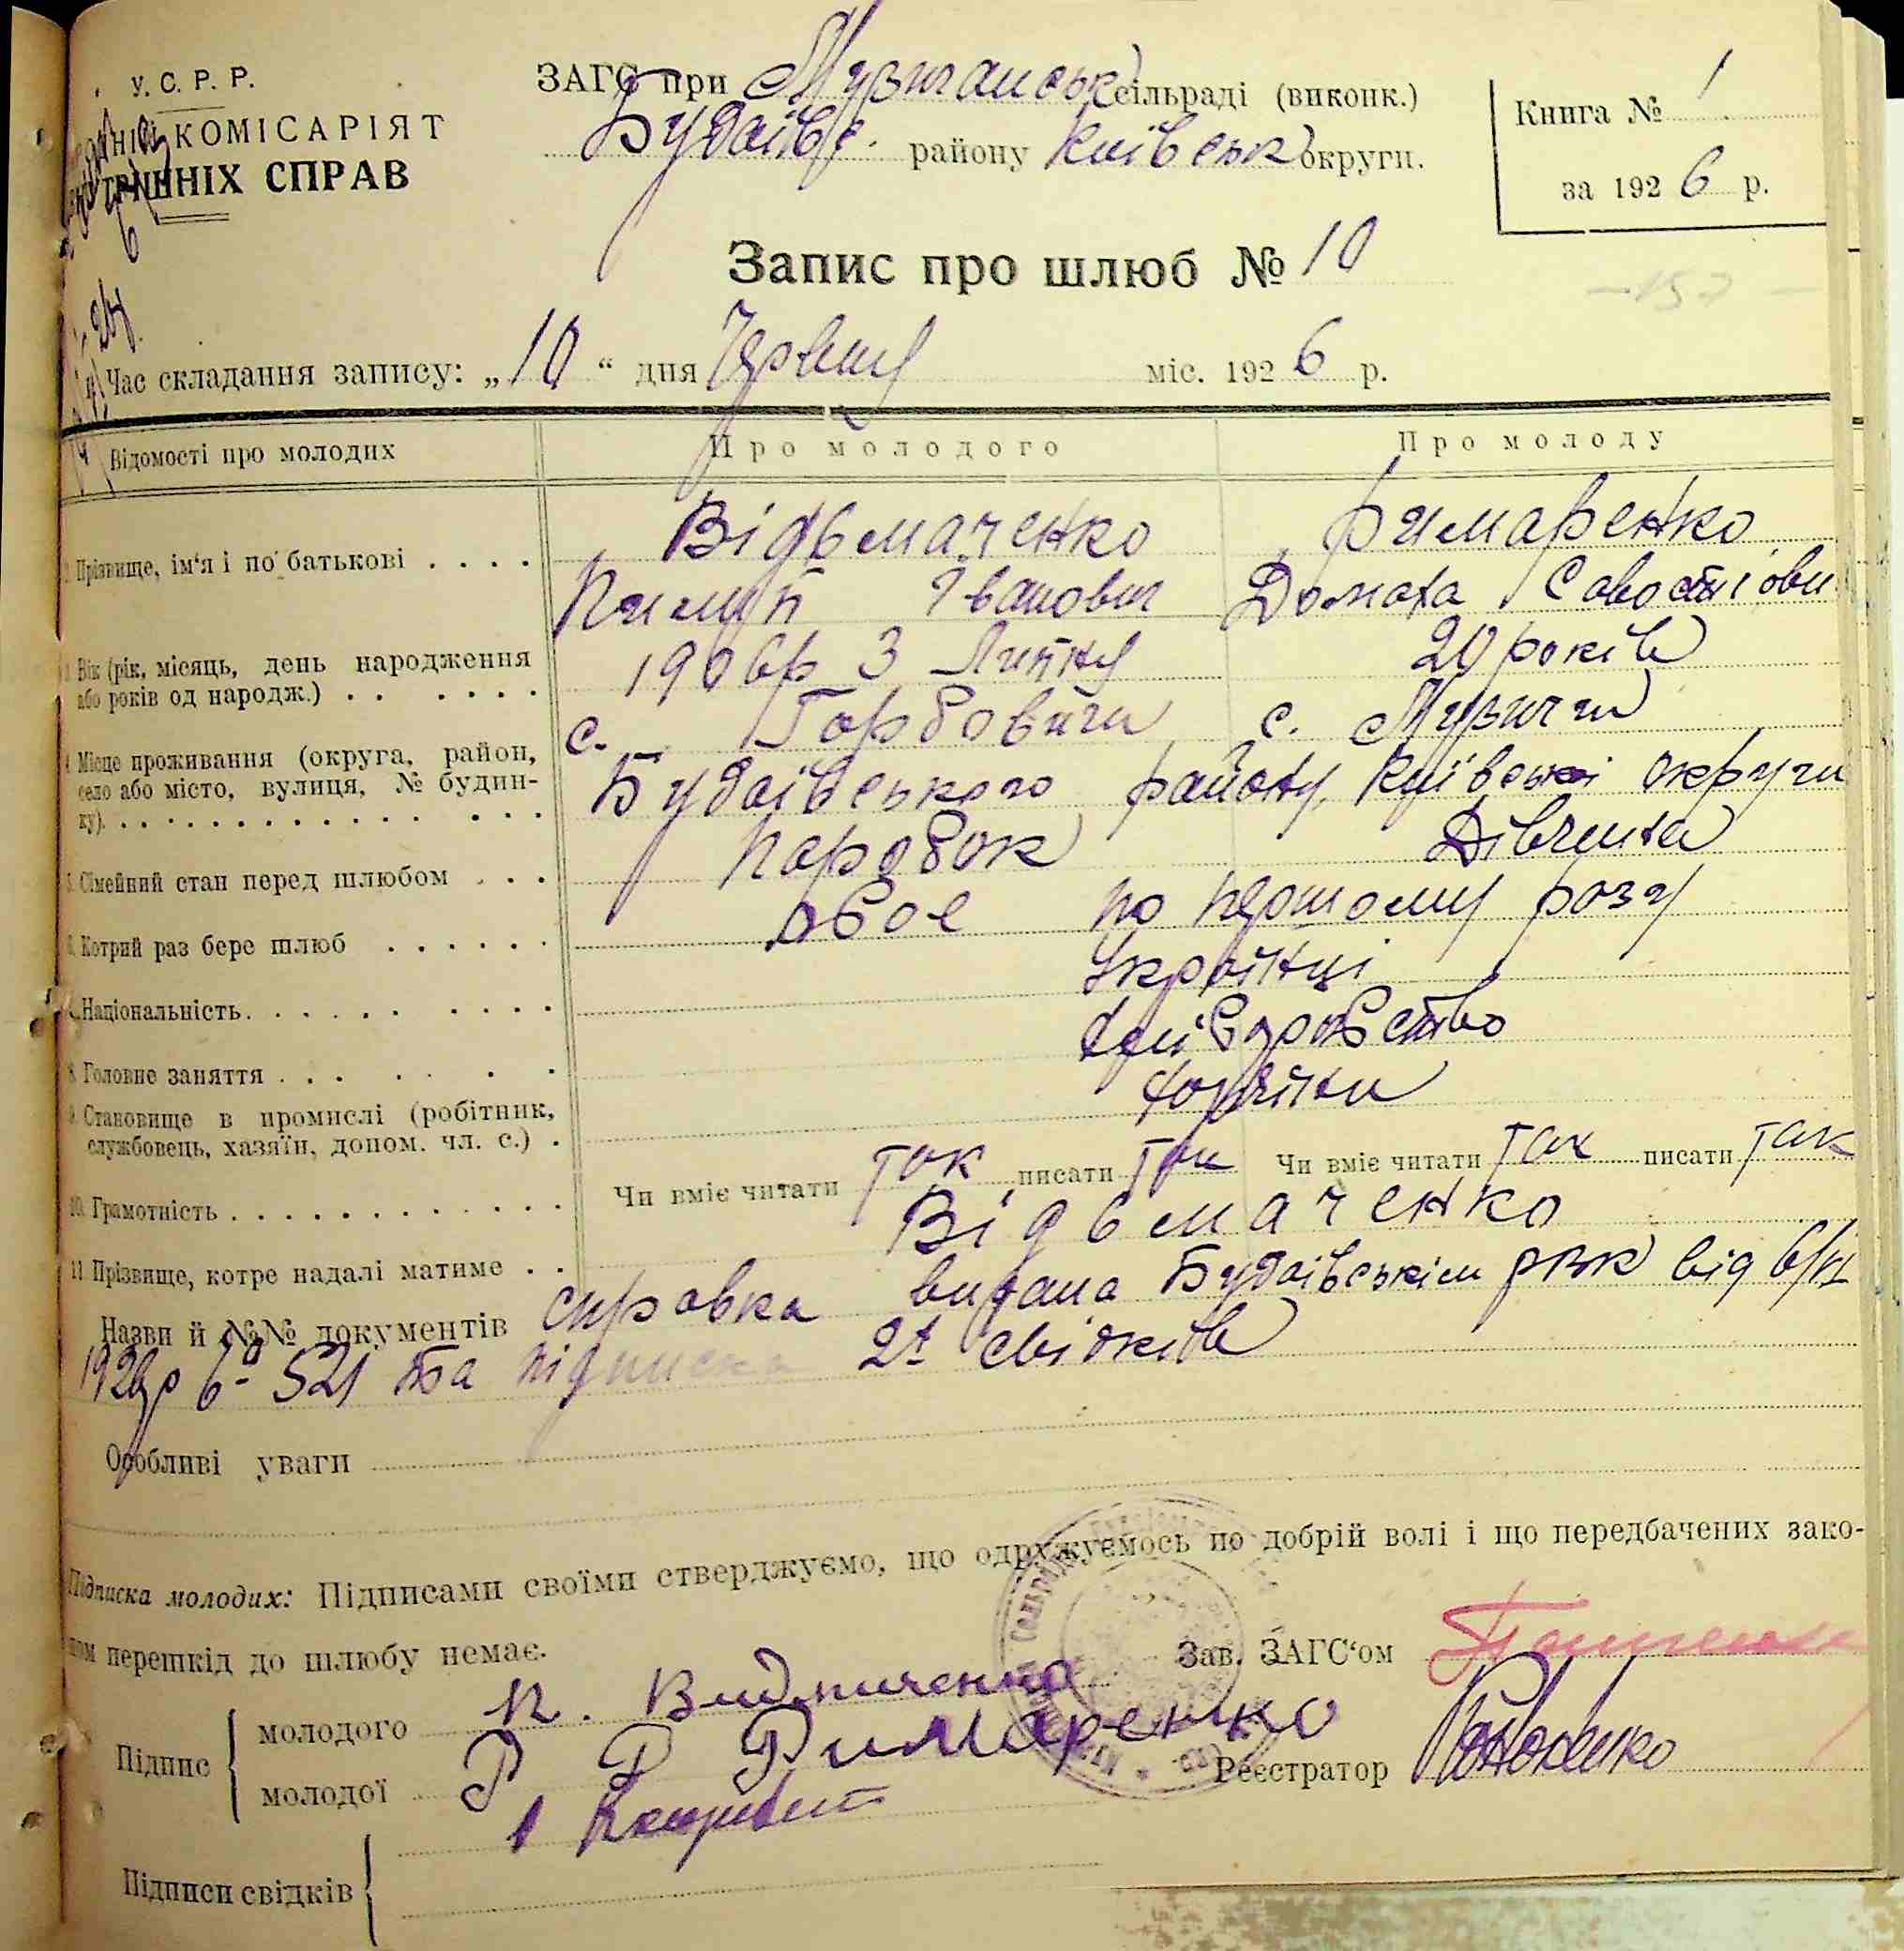 У.С.Р.Р.
КОМІСАРІЯТ
СПРАВ
ЗАГС при Музичанськ сільраді (виконк.)
Будаївс. району Київськ округи.
Книга № 1
за 1926 р.
Запис про шлюб № 10
— 157 —
Час складання запису: „10“ дня Червня міс. 1926 р.
Відомості про молодих Про молодого Про молоду
2. Прізвище, ім'я і по батькові . . . . Відьмаченко Римаренко
Пимип Іванович Домаха Савостіови
3. Вік (рік, місяць, день народження 1906р 3 Липня 20 років
або років од народж.) . . . . . .
с. Горбовичи с. Музичи
4. Місце проживання (округа, район,
село або місто, вулиця, № будин- Будаївського району, Київської округи
ку). . . . . . . . . . . . . . . .
5. Сімейний стан перед шлюбом . . . Паробок Дівчина
6. Котрий раз бере шлюб . . . . . . обоє по першому разу
7. Національність. . . . . . . . . . Українці
8. Головне заняття . . . . . . хліборобство
9. Становище в промислі (робітник,
службовець, хазяїн, допом. чл. с.) .
10. Грамотність . . . . . . . . . . . . Чи вміє читати так писати так Чи вміє читати так писати так
11. Прізвище, котре надалі матиме . . Відьмаченко
Назви й №№ документів справка видана Будаївським РВК від 6/VI
521 та підписка 2х свідків
Особливі уваги
Підписка молодих: Підписами своїми стверджуємо, що одружуємось по добрій волі і що передбачених зако-
ном перешкід до шлюбу немає.
Зав. ЗАГС'ом
Підпис
молодого П. Видмиченко
молодої Р Р Римаренко
Реєстратор
Підписи свідків